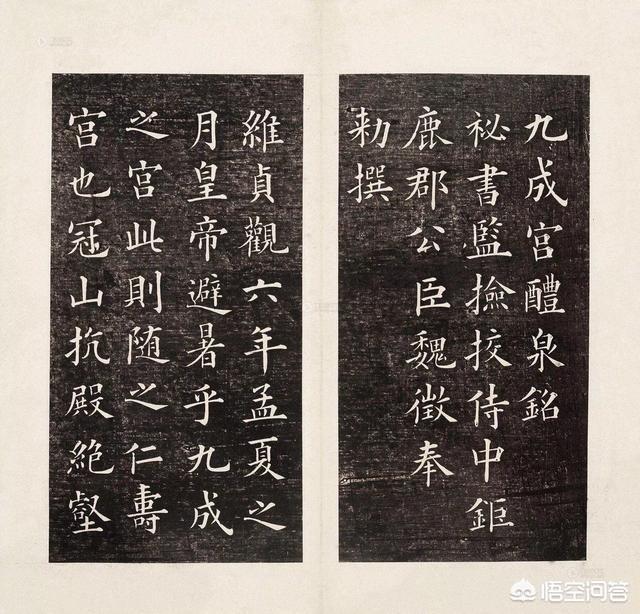 九成宫醴泉銘
秘書監撿挍侍中鉅
鹿郡公臣魏徵奉
勑撰
維貞觀六年孟夏之
月皇帝避暑乎九成
之宫此則随之仁壽
宫也冠山抗殿絶壑
悟空问答